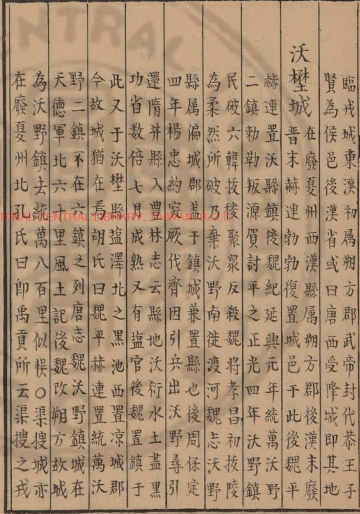 臨戎城東漢初屬朔方郡武帝封代恭王子
賢為侯邑後漢省或曰唐西受降城即其地
沃壄城在廢夏州西漢縣屬朔方郡後漢末廢
晉末赫連勃勃復置城邑于此後魏平
赫連置沃縣鎮後魏紀延興元年統萬沃野
二鎮勅勒叛源賀討平之正光四年沃野鎮
民破六韓拔陵聚眾反殺魏將孝昌初拔陵
為柔然所破乃棄沃野南徙渡河魏志沃野
縣屬偏城郡蓋于鎮城兼置縣也後周保定
四年楊忠約突厥代齊因引兵出沃野尋引
還隋并縣入豊林志云縣地沃衍水土盡黑
功省數倍七月成熟又有塩官後魏置鎮于
此又于沃壄縣塩澤北之黑池西置涼城郡
今故城猶在長胡氏曰魏平赫連置統萬沃
野二鎮不在六鎮之列唐志魏沃野鎮城在
天德軍北六十里風土記後魏改朔方故城
為沃野鎮去統萬八百里似悮〇渠搜城亦
在廢夏州北孔氏曰即禹貢所云渠搜之戎